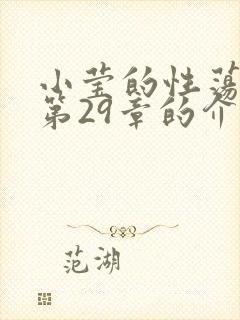 小莹的性荡
第29章的介
范湖